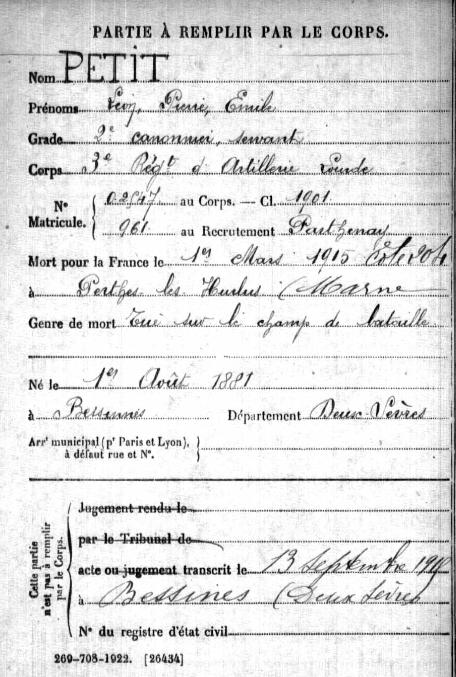 PARTIE À REMPLIR PAR LE CORPS.
Nom PETIT
Prénoms Léon, Pierre, Emile
Grade 2e canonnier, servant
Corps 3e Régt d'Artillerie Lourde
N° Matricule. 02547 au Corps. — Cl. 1901
961 au Recrutement Parthenay
Mort pour la France le 1er Mars 1915
à Perthes les Hurlus (Marne
Genre de mort Tué sur le champ de bataille
Né le 1er Août 1881
à Bessines Département Deux Sèvres
Arrt municipal (pr Paris et Lyon),
à défaut rue et N°.
Cette partie
n'est pas à remplir
par le Corps.
Jugement rendu le
par le Tribunal de
acte ou jugement transcrit le 13 septembre
à Bessines (Deux Sèvres
N° du registre d'état civil
269-708-1922. [26434]